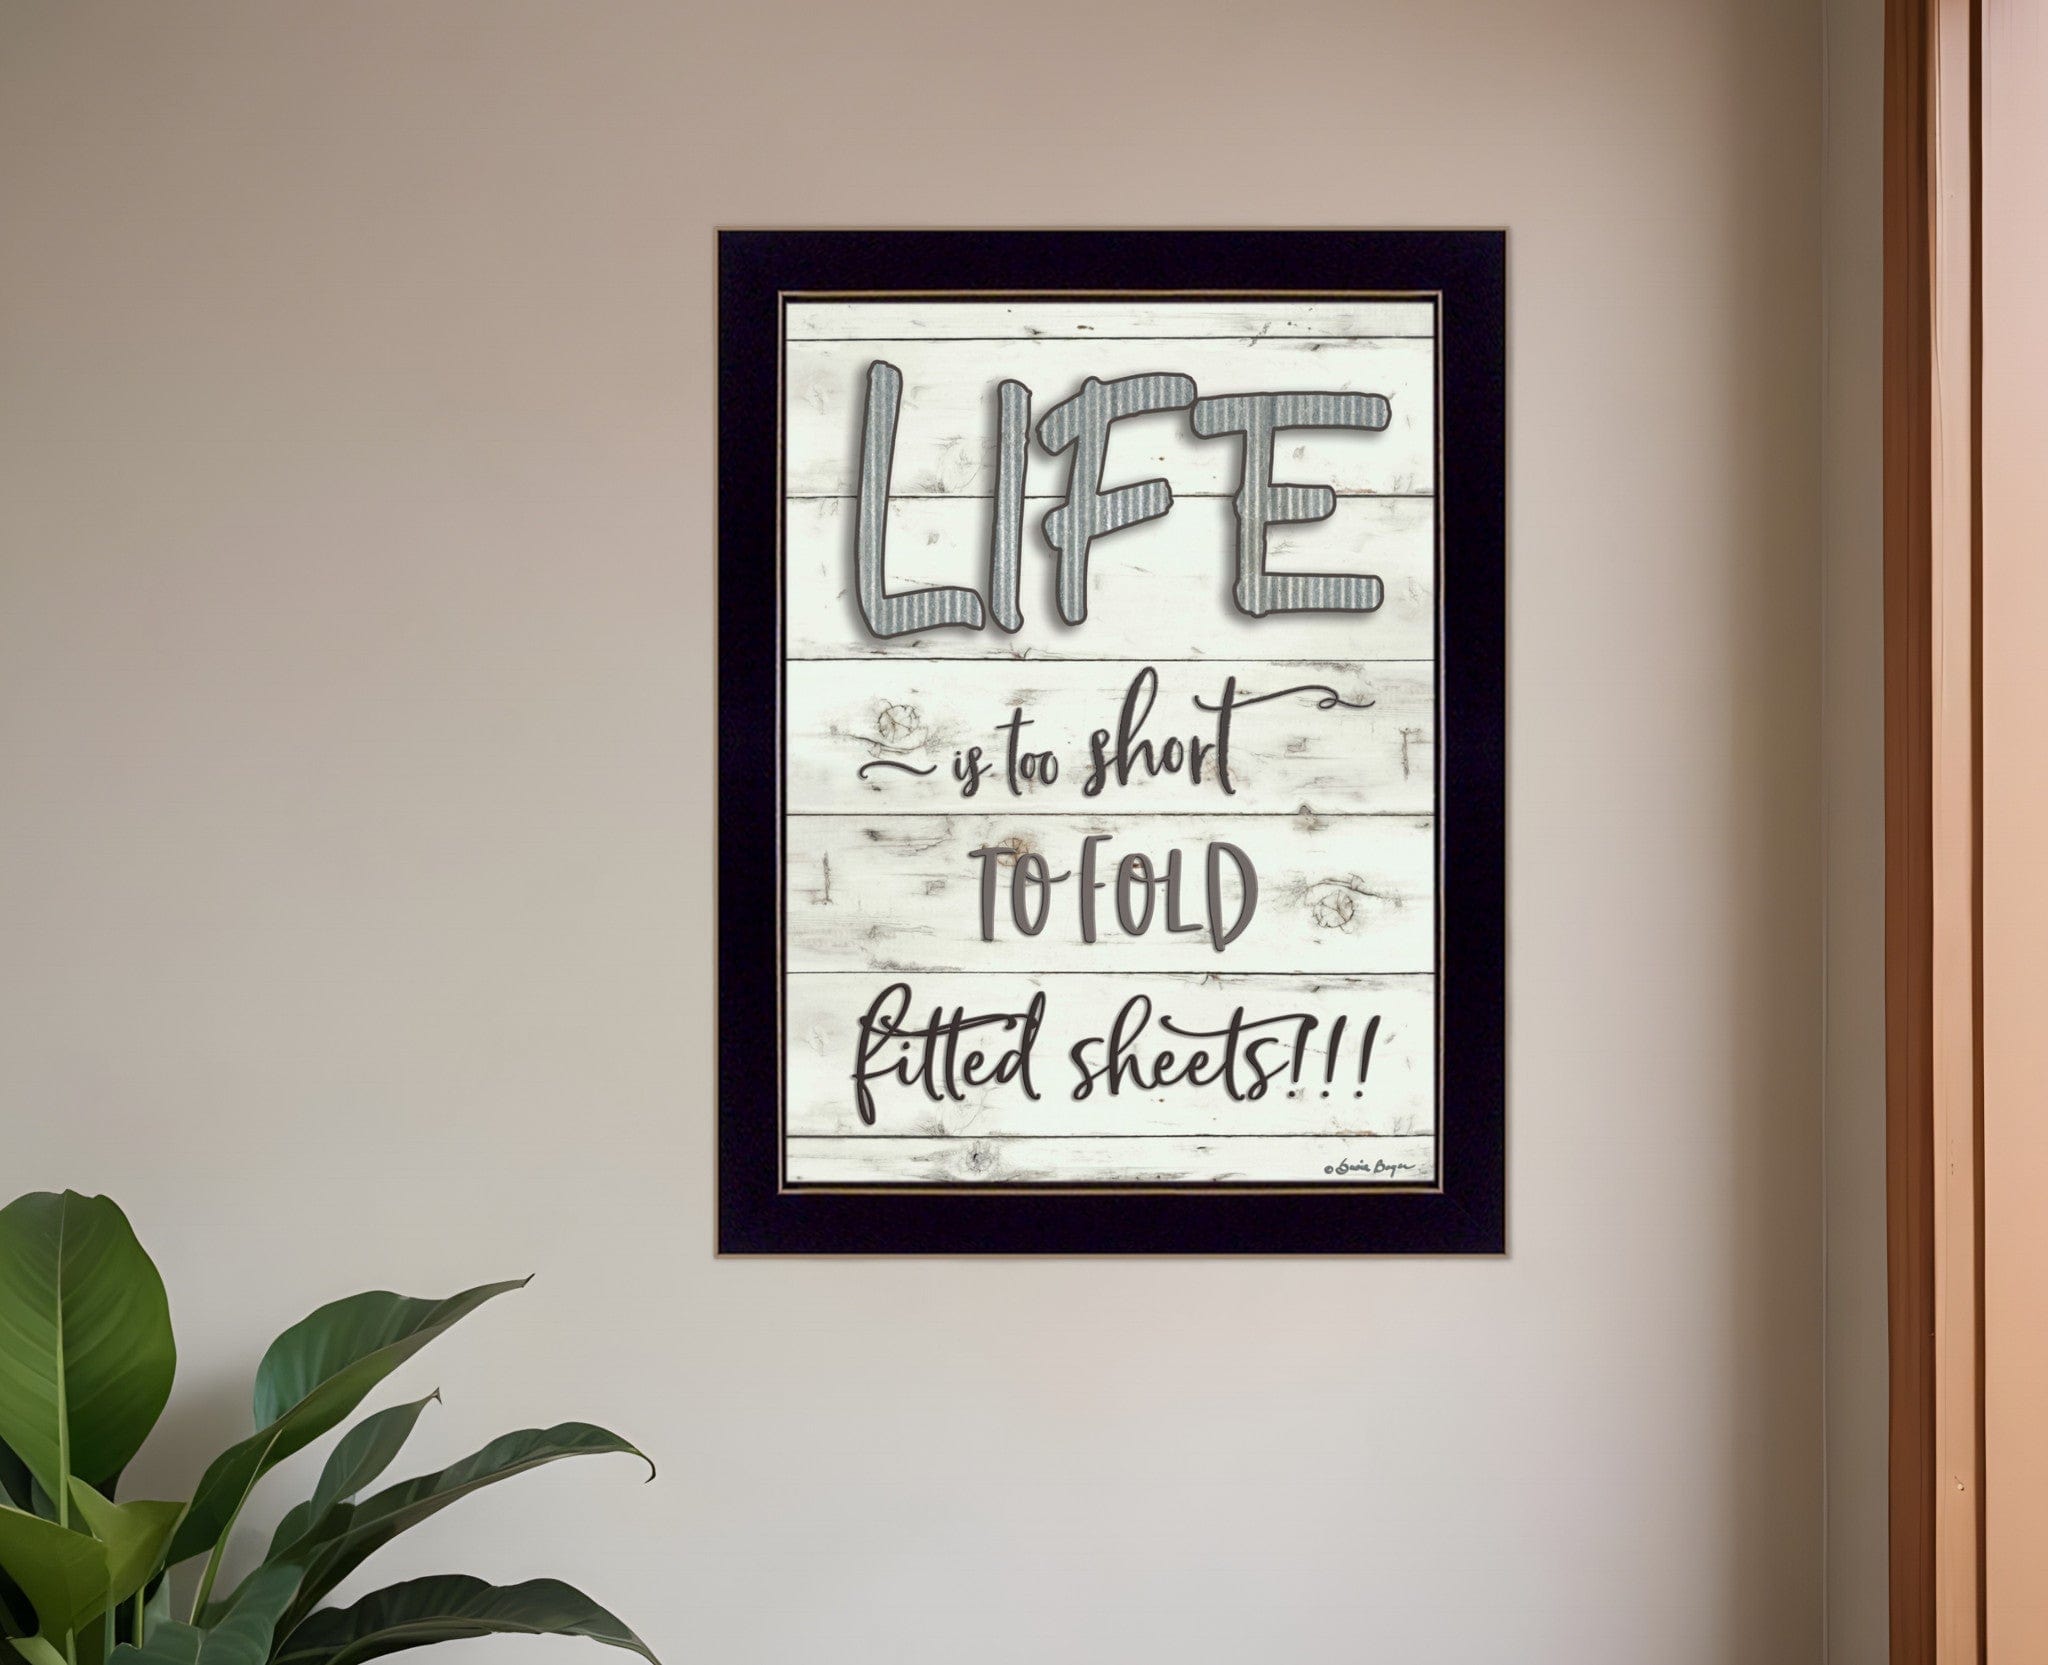 LIFE
is too short
TO FOLD
fitted sheets!!!
©Susie Boyer